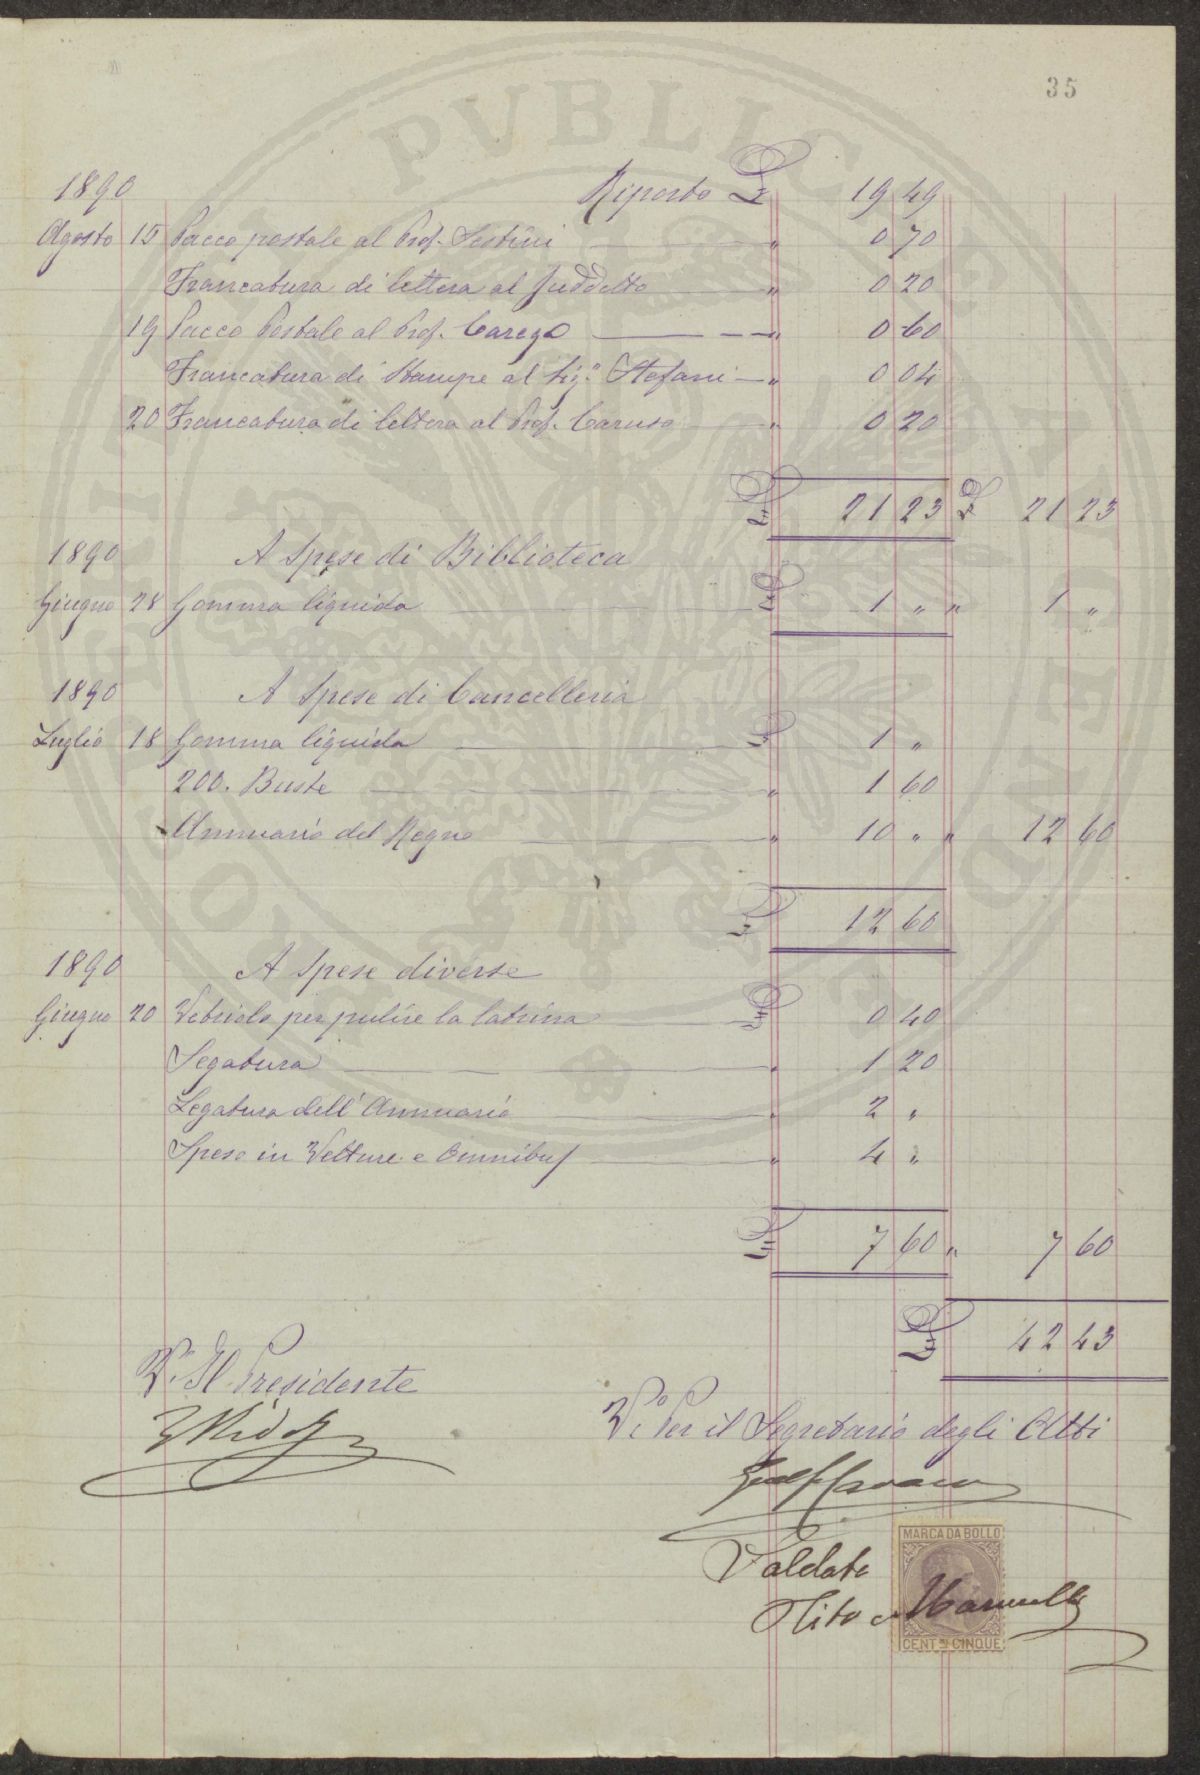 35
1890 Riporto L 19 49
Agosto 15 Pacco postale al Prof. Sestini " 0 70
Francatura di lettera al suddetto " 0 20
19 Pacco Postale al Prof. Carega " 0 60
Francatura di Stampe al Sig.r Stefani " 0 04
20 Francatura di lettera al Prof. Caruso " 0 20
L 21 23 L 21 23
1890 A Spese di Biblioteca
Giugno 28 Gomma liquida L 1 " " 1 "
1890 A Spese di Cancelleria
Luglio 18 Gomma liquida L 1 "
200. Buste " 1 60
Annuario del Regno " 10 " " 12 60
L 12 60
1890 A Spese diverse
Giugno 20 Vetriolo per pulire la latrina L 0 40
Segatura " 1 20
Legatura dell' Annuario " 2 "
Spese in Vetture e Omnibus " 4 "
L 7 60 " 7 60
L 42 43
V. Il Presidente
V.o Per il Segretario degli Atti
MARCA DA BOLLO
Saldato
Tito Marucelli
CENT.MI CINQUE